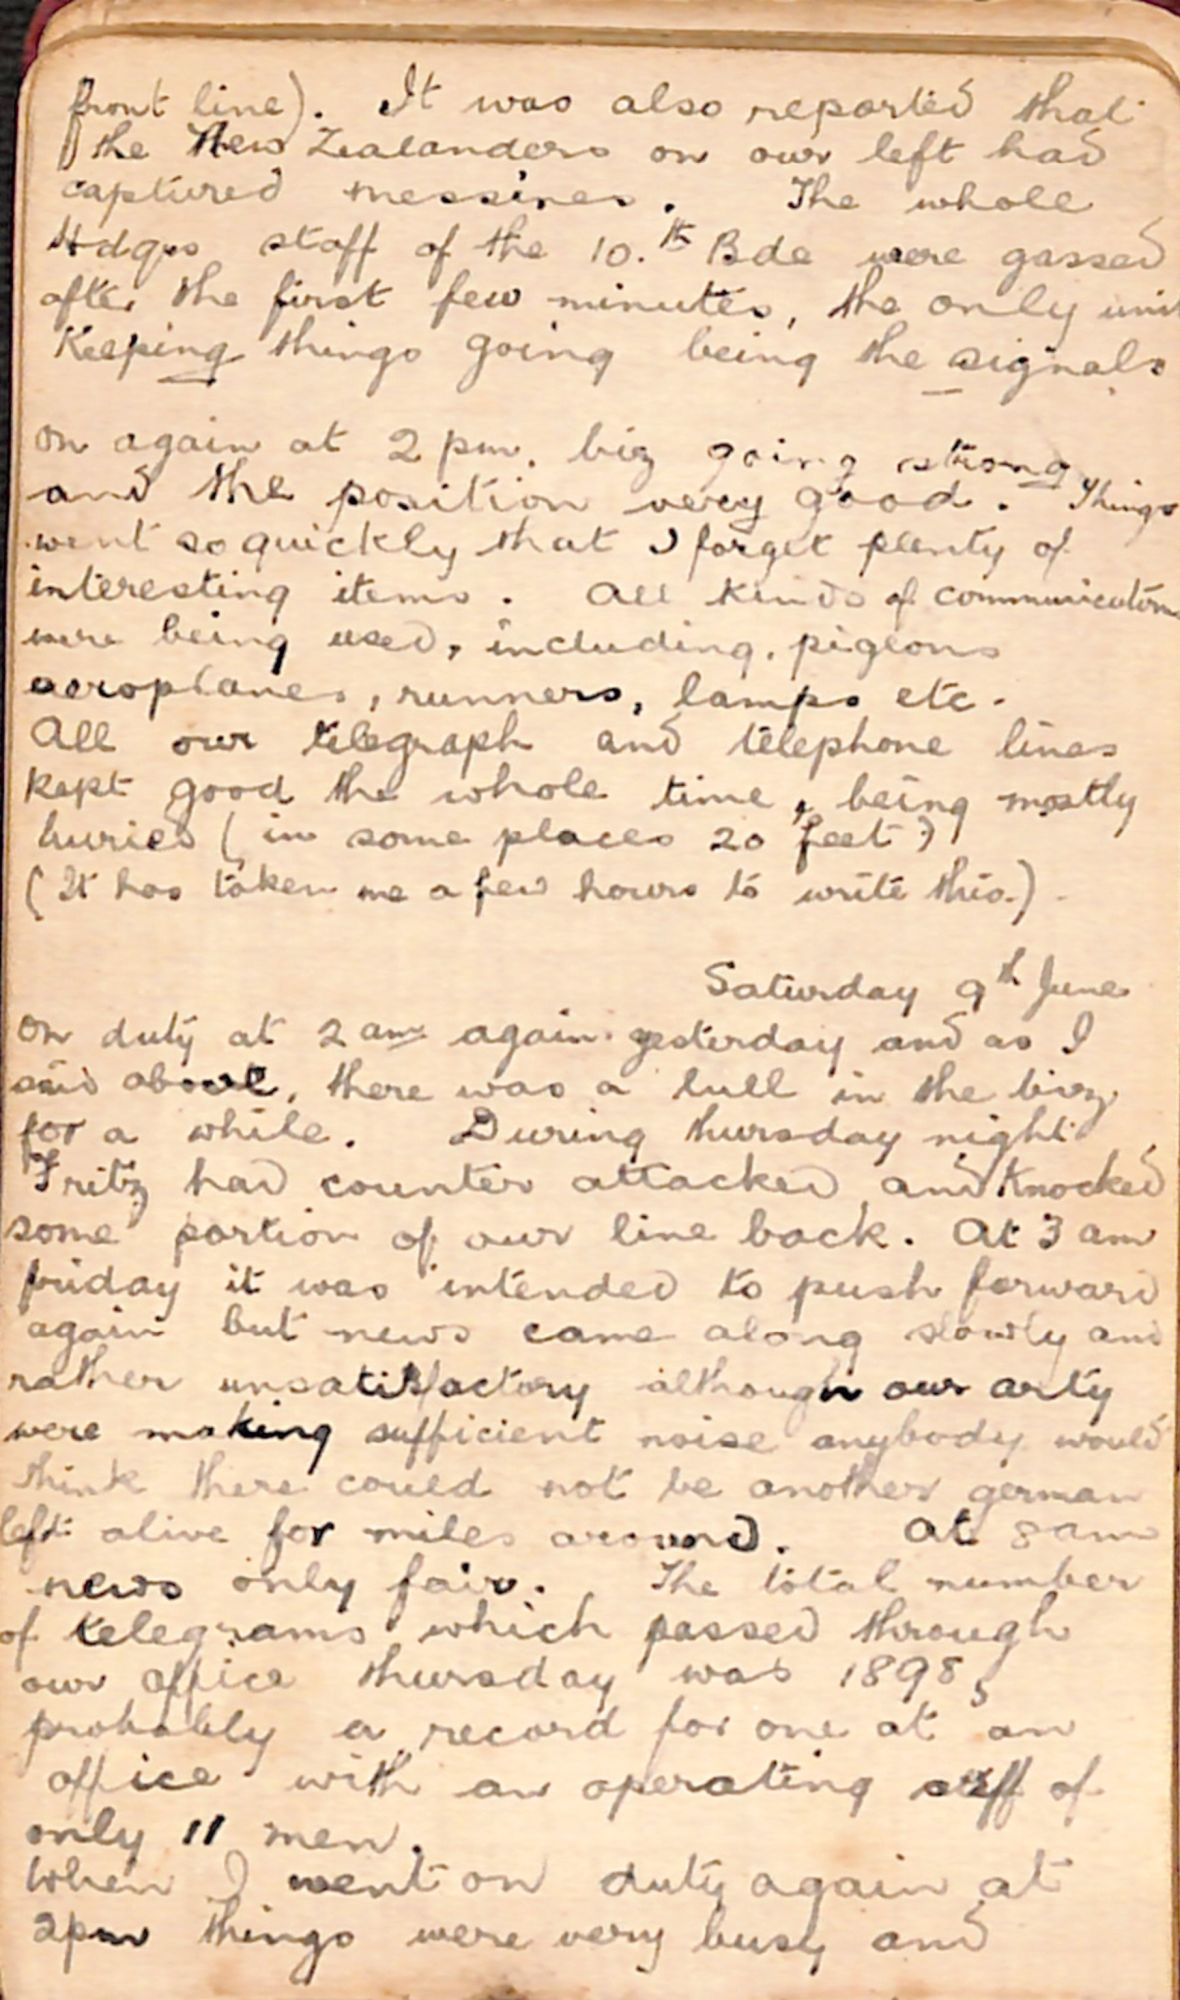 front line). It was also reported that
the New Zealanders on our left had
captured messines. The whole
Hdqrs staff of the 10.th Bde were gassed
after the first few minutes, the only unit
Keeping things going being the signals
On again at 2 pm. biz going strong
and the position very good. Things
went so quickly that I forget plenty of
interesting items. All kinds of communication
were being used, including, pigeons
aeroplanes, runners, lamps etc.
All our telegraph and telephone lines
kept good the whole time, being mostly
buried (in some places 20 feet)
(It has taken me a few hours to write this.)
Saturday 9th June
On duty at 2 am again yesterday and as I
said above, there was a lull in the bizz
for a while. During thursday night
Fritz had counter attacked and Knocked
some portion of our line back. At 3 am
friday it was intended to push forward
again but news came along slowly and
rather unsatisfactory although our arty
were making sufficient noise anybody would
think there could not be another german
left alive for miles around. At 8 am
news only fair. The total number
of telegrams which passed through
our office thursday was 1898,
probably a record for one at an
office with an operating staff of
only 11 men.
When I went on duty again at
2pm things were very busy and